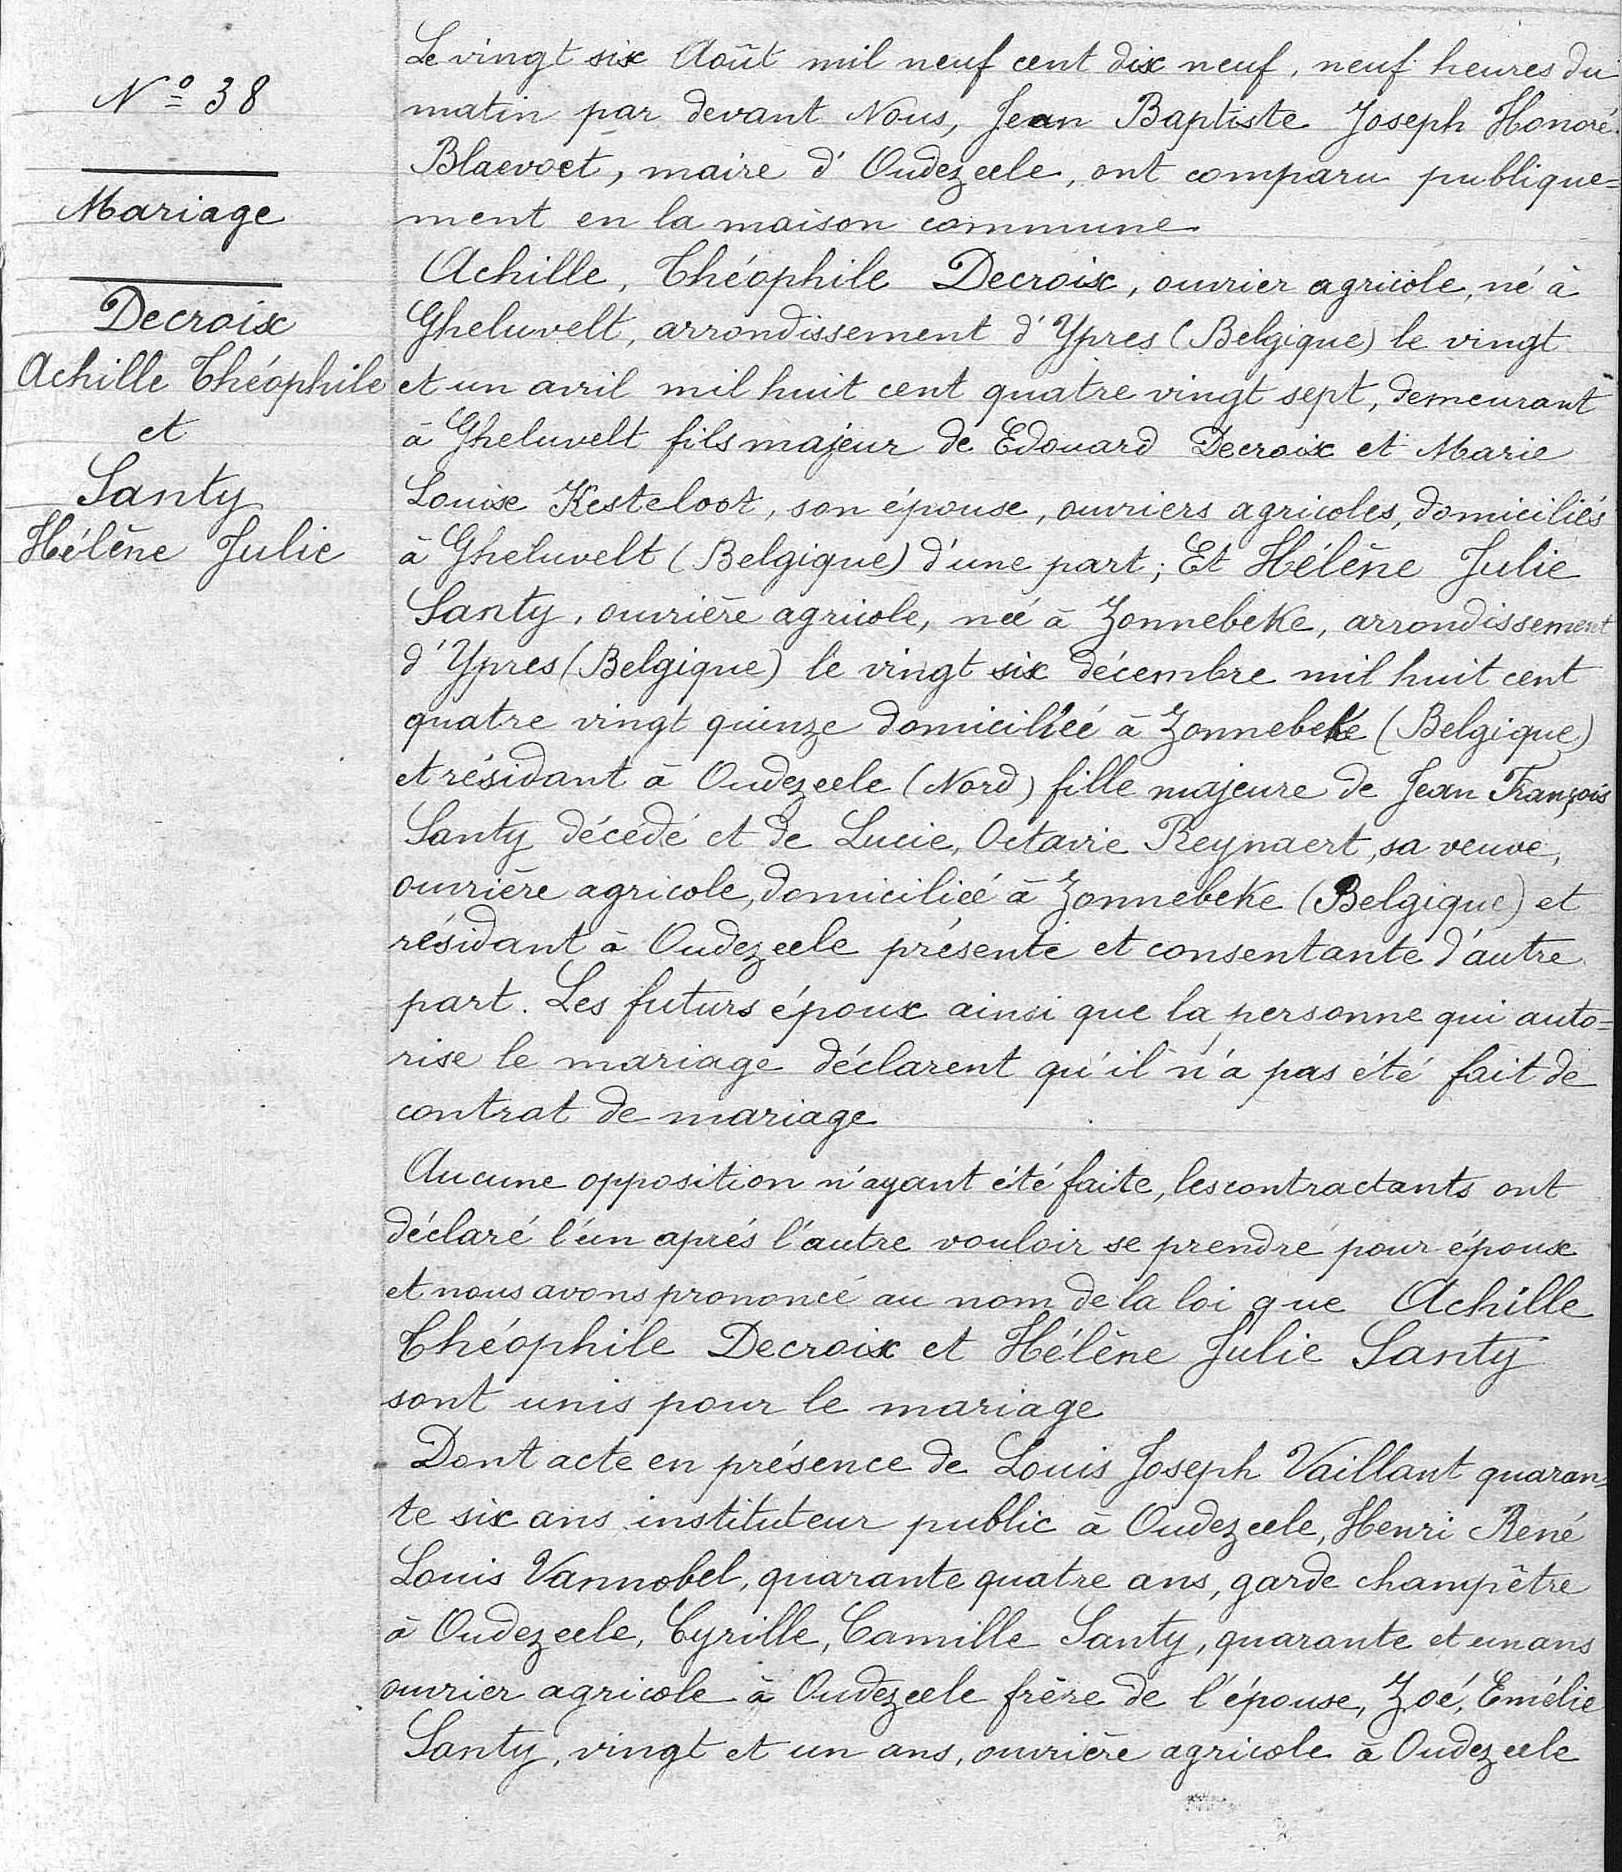 N° 38
Mariage
Decroix
Achille Théophile
et
Santy
Hélène Julie
Le vingt six Août mil neuf cent dix neuf, neuf heures du
matin par devant Nous, Jean Baptiste Joseph Honoré
Blaevoet, maire d'Oudezeele, ont comparu publique=
ment en la maison commune
Achille, Théophile Decroix, ouvrier agricole, né à
Gheluvelt, arrondissement d'Ypres (Belgique) le vingt
et un avril mil huit cent quatre vingt sept, demeurant
à Gheluvelt fils majeur de Edouard Decroix et Marie
Louise Kesteloot, son épouse, ouvriers agricoles, domiciliés
à Gheluvelt (Belgique) d'une part; Et Hélène Julie
Santy, ouvrière agricole, née à Zonnebeke, arrondissement
d'Ypres (Belgique) le vingt six décembre mil huit cent
quatre vingt quinze domiciliée à Zonnebeke (Belgique)
et résidant à Oudezeele (Nord) fille majeure de Jean François
Santy décédé et de Lucie, Octavie Reynaert, sa veuve,
ouvrière agricole, domiciliée à Zonnebeke (Belgique) et
résidant à Oudezeele présente et consentante d'autre
part. Les futurs époux ainsi que la personne qui auto=
rise le mariage déclarent qu'il n'a pas été fait de
contrat de mariage
Aucune opposition n'ayant été faite, les contractants ont
déclaré l'un après l'autre vouloir se prendre pour époux
et nous avons prononcé au nom de la loi que Achille
Théophile Decroix et Hélène Julie Santy
sont unis pour le mariage
Dont acte en présence de Louis Joseph Vaillant quaran=
te six ans instituteur public à Oudezeele, Henri René
Louis Vannobel, quarante quatre ans, garde champêtre
à Oudezeele, Cyrille, Camille Santy, quarante et un ans
ouvrier agricole à Oudezeele frère de l'épouse, Zoé, Emélie
Santy, vingt et un ans, ouvrière agricole à Oudezeele